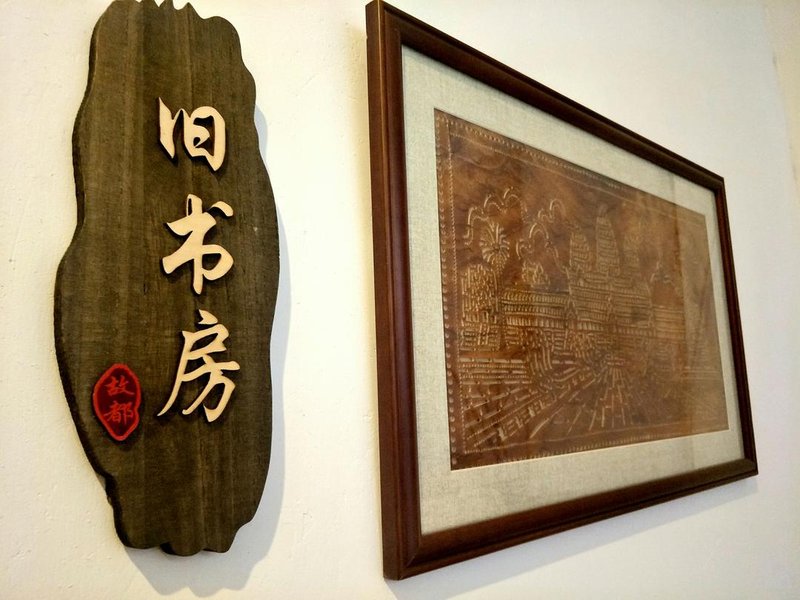 旧书房
故都